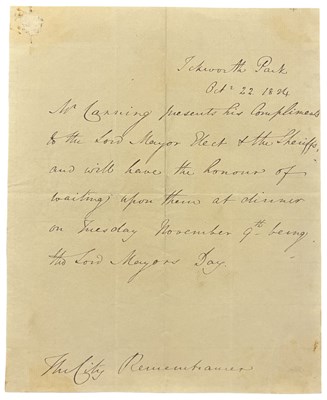 Ickworth Park
Octr 22 1824
Mr Canning presents his Compliments
to the Lord Mayor Elect & the Sheriffs,
and will have the honour of
waiting upon them at dinner
on Tuesday November 9th being
the Lord Mayors Day.
The City Remembrancer